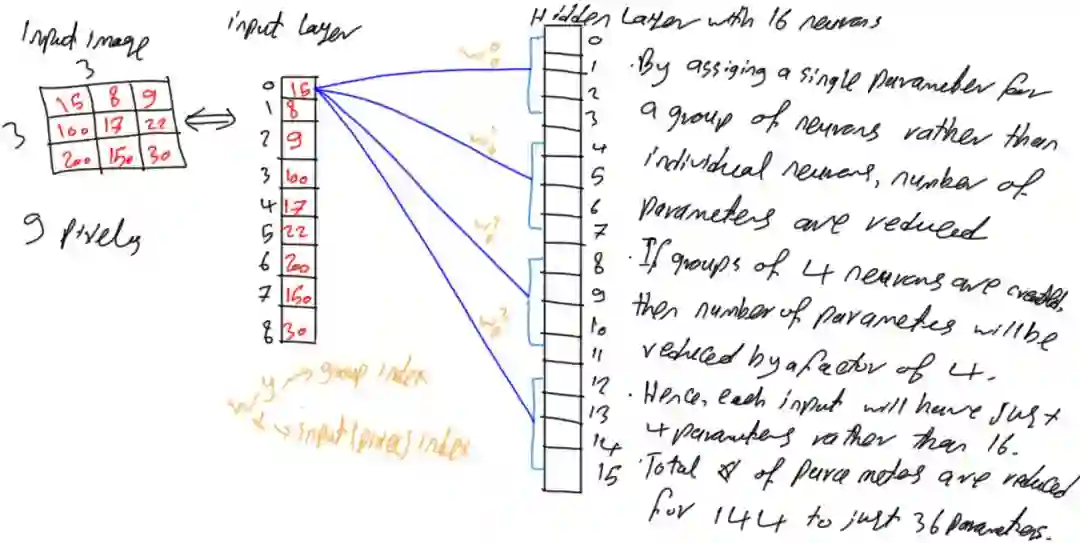 Input image
3
3
15 8 9
100 17 22
200 150 30
9 pixels
input layer
0 15
1 8
2 9
3 100
4 17
5 22
6 200
7 150
8 30
w 0 0
w 1 0
w 2 0
w 3 0
w y x
y → group index
x → input (pixel) index
Hidden Layer with 16 neurons
0
1
2
3
4
5
6
7
8
9
10
11
12
13
14
15
. By assiging a single parameter for
a group of neurons rather than
individual neurons, number of
parameters are reduced
. If groups of 4 neurons are created,
then number of parameters will be
reduced by a factor of 4.
. Hence, each input will have just
4 parameters rather than 16.
. Total # of parameters are reduced
for 144 to just 36 parameters.